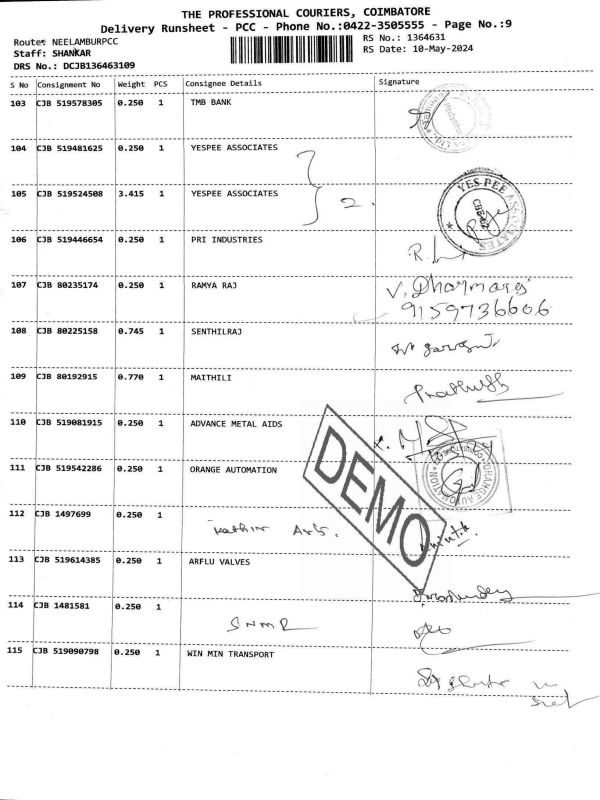 THE PROFESSIONAL COURIERS, COIMBATORE
Delivery Runsheet - PCC - Phone No.:0422-3505555 - Page No.:9
Route: NEELAMBURPCC
RS No.: 1364631
Staff: SHANKAR
RS Date: 10-May-2024
DRS No.: DCJB136463109
S No Consignment No Weight PCS Consignee Details Signature
103 CJB 519578305 0.250 1 TMB BANK
104 CJB 519481625 0.250 1 YESPEE ASSOCIATES
105 CJB 519524508 3.415 1 YESPEE ASSOCIATES 2. YES PEE ASSOCIATES
106 CJB 519446654 0.250 1 PRI INDUSTRIES
107 CJB 80235174 0.250 1 RAMYA RAJ V. Dharmaraj
9159736606
108 CJB 80225158 0.745 1 SENTHILRAJ
109 CJB 80192915 0.770 1 MAITHILI
110 CJB 519081915 0.250 1 ADVANCE METAL AIDS
111 CJB 519542286 0.250 1 ORANGE AUTOMATION ORANGE AUTOMATION
DEMO
112 CJB 1497699 0.250 1
113 CJB 519614385 0.250 1 ARFLU VALVES
114 CJB 1481581 0.250 1 SNMR
115 CJB 519090798 0.250 1 WIN MIN TRANSPORT